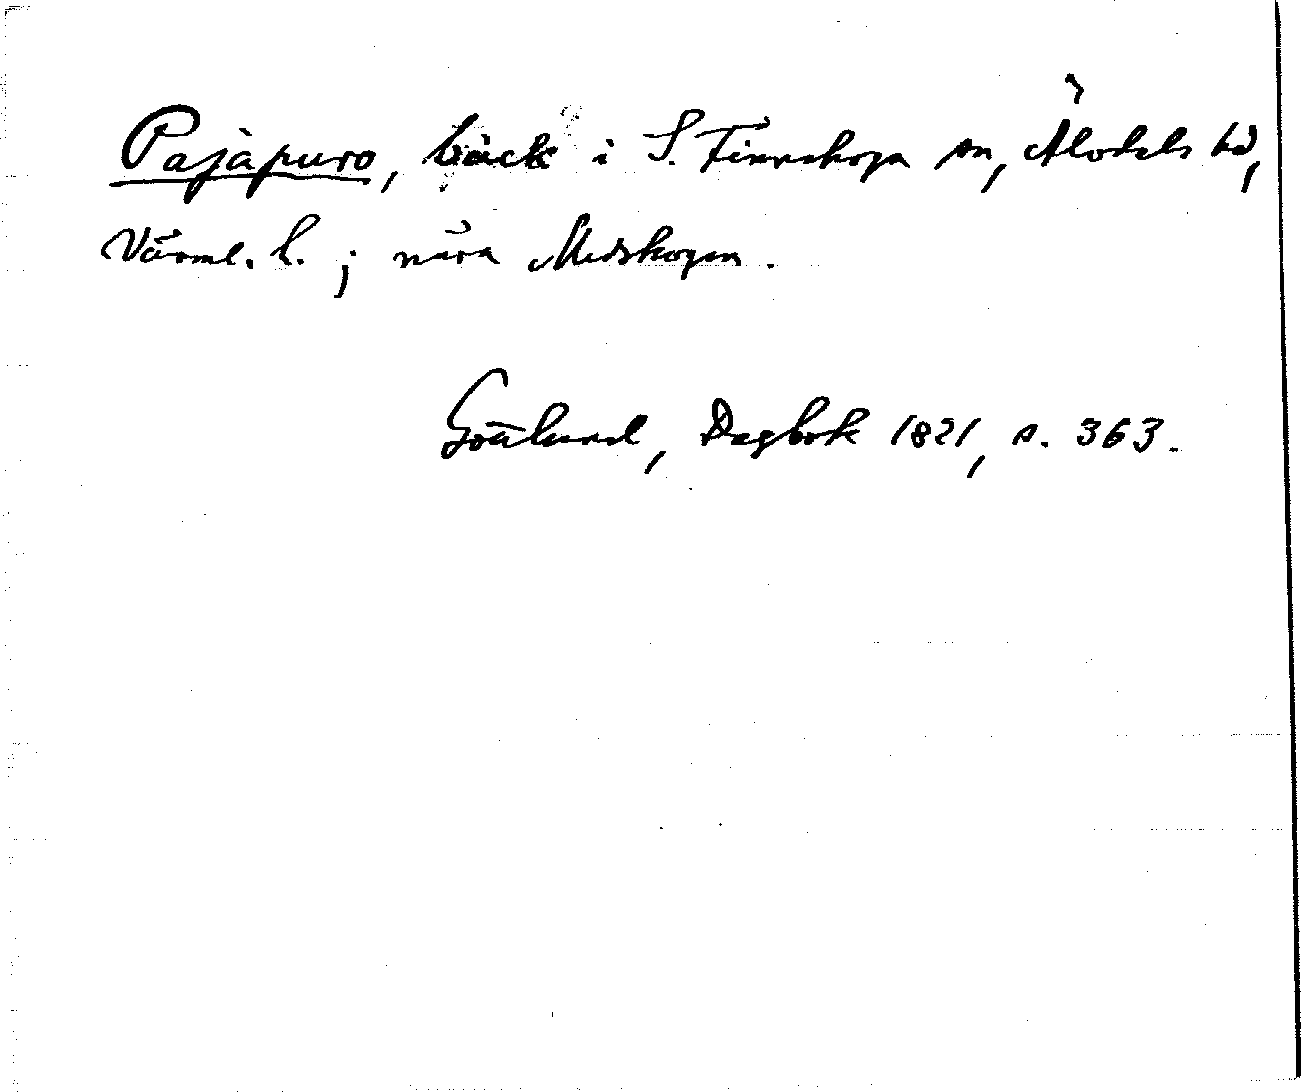 Pajapuro, bäck i S. Finnskoga sn, Älvdals hd,
Värml. l. ; nära Medskogen.
Gottlund, Dagbok 1821, s. 363.